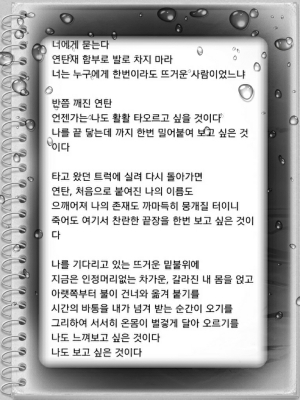 너에게 묻는다
연탄재 함부로 발로 차지 마라
너는 누구에게 한번이라도 뜨거운 사람이었느냐
반쯤 깨진 연탄
언젠가는 나도 활활 타오르고 싶을 것이다
나를 끝 닿는데 까지 한번 밀어붙여 보고 싶은 것
이다
타고 왔던 트럭에 실려 다시 돌아가면
연탄, 처음으로 붙여진 나의 이름도
으깨어져 나의 존재도 까마득히 뭉개질 터이니
죽어도 여기서 찬란한 끝장을 한번 보고 싶은 것이
다
나를 기다리고 있는 뜨거운 밑불위에
지금은 인정머리없는 차가운, 갈라진 내 몸을 얹고
아랫쪽부터 불이 건너와 옮겨 붙기를
시간의 바통을 내가 넘겨 받는 순간이 오기를
그리하여 서서히 온몸이 벌겋게 달아 오르기를
나도 느껴보고 싶은 것이다
나도 보고 싶은 것이다